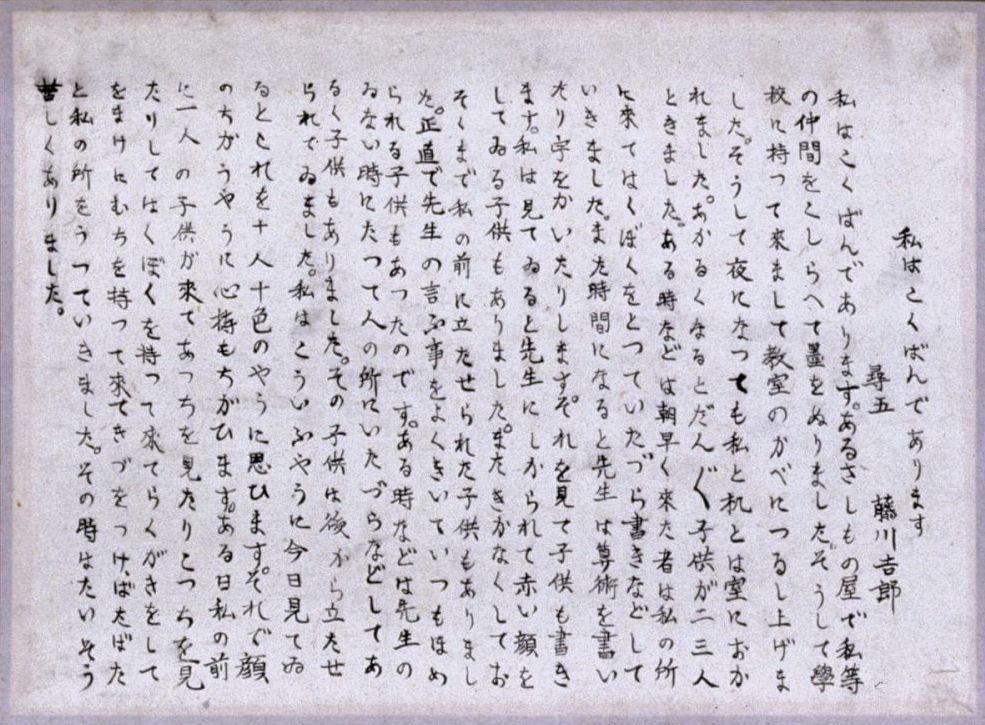 私はこくばんであります
尋五　藤川吉郎
私はこくばんであります。あるさしもの屋で私等
の仲間をこしらへて墨をぬりました。そうして學
校に持つて來まして教室のかべにつるし上げま
した。そうして夜になつても私と机とは室におか
れました。あかるくなるとだん〴〵子供が二三人
ときました。ある時などは朝早く來た者は私の所
に來てはくぼくをとつていたづら書きなどして
いきました。また時間になると先生は算術を書い
たり字をかいたりします。それを見て子供も書き
ます。私は見てゐると先生にしかられて赤い顔を
してゐる子供もありました。またきかなくしてお
そくまで私の前に立たせられた子供もありまし
た。正直で先生の言ふ事をよくきいていつもほめ
られる子供もあつたのです。ある時などは先生の
ゐない時にたつて人の所にいたづらなどしてあ
るく子供もありました。その子供は後から立たせ
られてゐました。私はこういふやうに今日見てゐ
るとこれを十人十色のやうに思ひます。それで顔
のちがうやうに心持もちがひます。ある日私の前
に一人の子供が來てあつちを見たりこつちを見
たりしてはくぼくを持つて來てらくがきをして
をまけにむちを持つて來てきづをつけ、ばたばた
と私の所をうつていきました。その時はたいそう
苦しくありました。